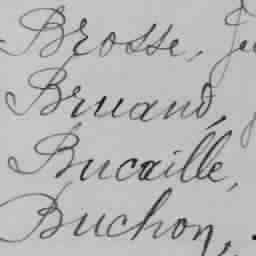 Brosse,
Bruand,
Bucaille,
Buchon,